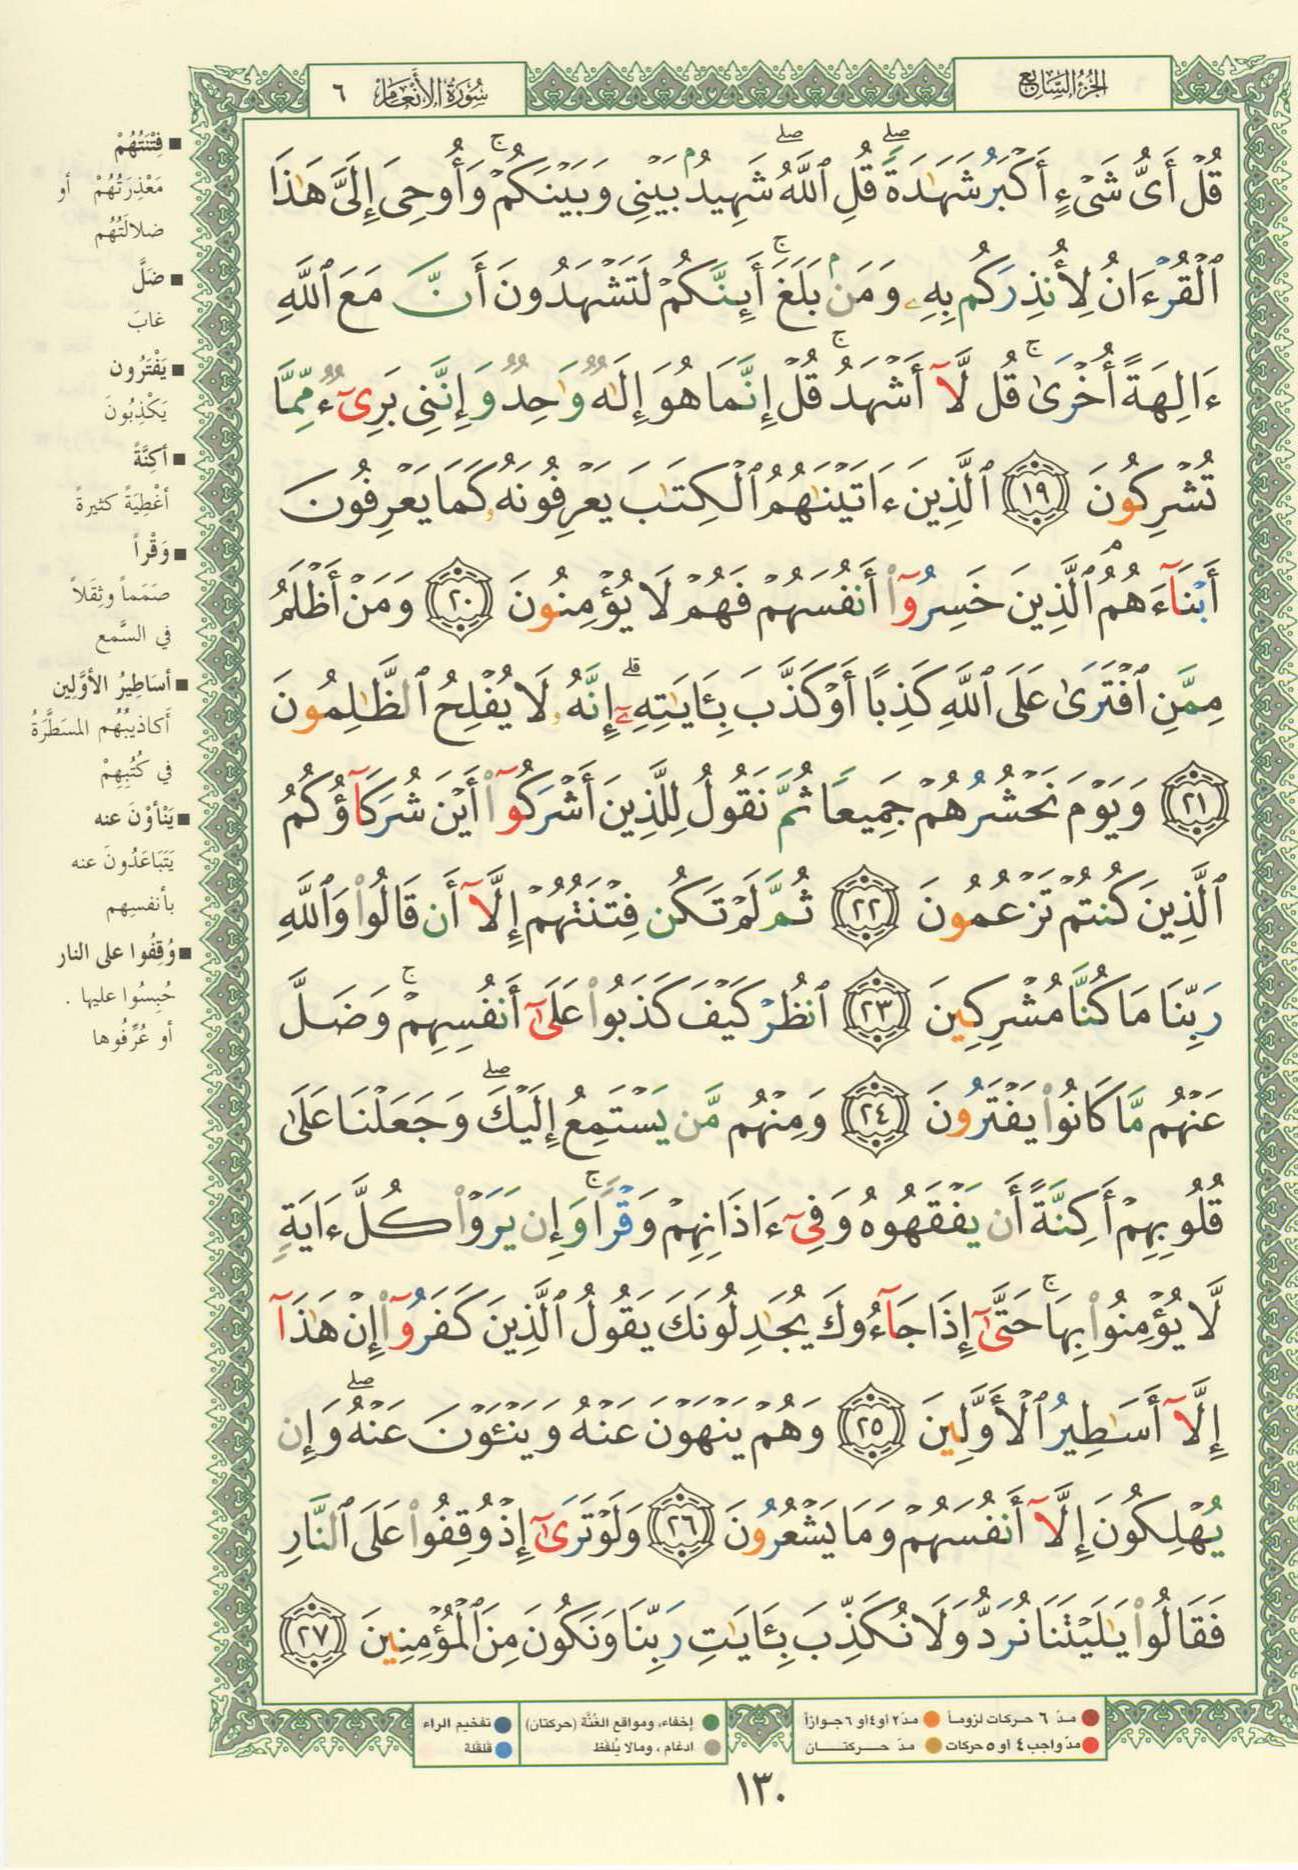 الجزء السابع
سورة الأنعام ٦
قُلْ أَىُّ شَىْءٍ أَكْبَرُ شَهَـٰدَةً ۖ قُلِ ٱللَّهُ ۖ شَهِيدٌۢ بَيْنِى وَبَيْنَكُمْ ۚ وَأُوحِىَ إِلَىَّ هَـٰذَا
ٱلْقُرْءَانُ لِأُنذِرَكُم بِهِۦ وَمَنۢ بَلَغَ ۚ أَئِنَّكُمْ لَتَشْهَدُونَ أَنَّ مَعَ ٱللَّهِ
ءَالِهَةً أُخْرَىٰ ۚ قُل لَّآ أَشْهَدُ ۚ قُلْ إِنَّمَا هُوَ إِلَـٰهٌ وَٰحِدٌ وَإِنَّنِى بَرِىٓءٌ مِّمَّا
تُشْرِكُونَ ١٩ ٱلَّذِينَ ءَاتَيْنَـٰهُمُ ٱلْكِتَـٰبَ يَعْرِفُونَهُۥ كَمَا يَعْرِفُونَ
أَبْنَآءَهُمُ ۘ ٱلَّذِينَ خَسِرُوٓا۟ أَنفُسَهُمْ فَهُمْ لَا يُؤْمِنُونَ ٢٠ وَمَنْ أَظْلَمُ
مِمَّنِ ٱفْتَرَىٰ عَلَى ٱللَّهِ كَذِبًا أَوْ كَذَّبَ بِـَٔايَـٰتِهِۦٓ ۗ إِنَّهُۥ لَا يُفْلِحُ ٱلظَّـٰلِمُونَ
٢١ وَيَوْمَ نَحْشُرُهُمْ جَمِيعًا ثُمَّ نَقُولُ لِلَّذِينَ أَشْرَكُوٓا۟ أَيْنَ شُرَكَآؤُكُمُ
ٱلَّذِينَ كُنتُمْ تَزْعُمُونَ ٢٢ ثُمَّ لَمْ تَكُن فِتْنَتُهُمْ إِلَّآ أَن قَالُوا۟ وَٱللَّهِ
رَبِّنَا مَا كُنَّا مُشْرِكِينَ ٢٣ ٱنظُرْ كَيْفَ كَذَبُوا۟ عَلَىٰٓ أَنفُسِهِمْ ۚ وَضَلَّ
عَنْهُم مَّا كَانُوا۟ يَفْتَرُونَ ٢٤ وَمِنْهُم مَّن يَسْتَمِعُ إِلَيْكَ ۖ وَجَعَلْنَا عَلَىٰ
قُلُوبِهِمْ أَكِنَّةً أَن يَفْقَهُوهُ وَفِىٓ ءَاذَانِهِمْ وَقْرًا ۚ وَإِن يَرَوْا۟ كُلَّ ءَايَةٍ
لَّا يُؤْمِنُوا۟ بِهَا ۚ حَتَّىٰٓ إِذَا جَآءُوكَ يُجَـٰدِلُونَكَ يَقُولُ ٱلَّذِينَ كَفَرُوٓا۟ إِنْ هَـٰذَآ
إِلَّآ أَسَـٰطِيرُ ٱلْأَوَّلِينَ ٢٥ وَهُمْ يَنْهَوْنَ عَنْهُ وَيَنْـَٔوْنَ عَنْهُ ۖ وَإِن
يُهْلِكُونَ إِلَّآ أَنفُسَهُمْ وَمَا يَشْعُرُونَ ٢٦ وَلَوْ تَرَىٰٓ إِذْ وُقِفُوا۟ عَلَى ٱلنَّارِ
فَقَالُوا۟ يَـٰلَيْتَنَا نُرَدُّ وَلَا نُكَذِّبَ بِـَٔايَـٰتِ رَبِّنَا وَنَكُونَ مِنَ ٱلْمُؤْمِنِينَ ٢٧
■ فِتْنَتُهُمْ
مَعْذِرَتُهُمْ أو
ضلالَتُهُم
■ ضَلَّ
غابَ
■ يَفْتَرُون
يَكْذِبُونَ
■ أكِنَّةً
أغْطِيَةً كثيرةً
■ وَقْراً
صَمَماً وثِقَلاً
في السَّمع
■ أسَاطِيرُ الأوَّلِين
أكاذيبُهُم المسَطَّرَةُ
في كُتُبِهِمْ
■ يَنْأوْنَ عنه
يَتَبَاعَدُونَ عنه
بأنفسِهم
■ وُقِفُوا على النار
حُبِسُوا عليها .
أو عُرِّفُوها
مدّ ٦ حركات لزوماً مدّ ٢ أو ٤ أو ٦ جوازاً
مدّ واجب ٤ أو ٥ حركات مدّ حركتان
إخفاء، ومواقع الغُنَّة (حركتان) تفخيم الراء
ادغام ، ومالا يُلفظ قلقلة
١٣٠